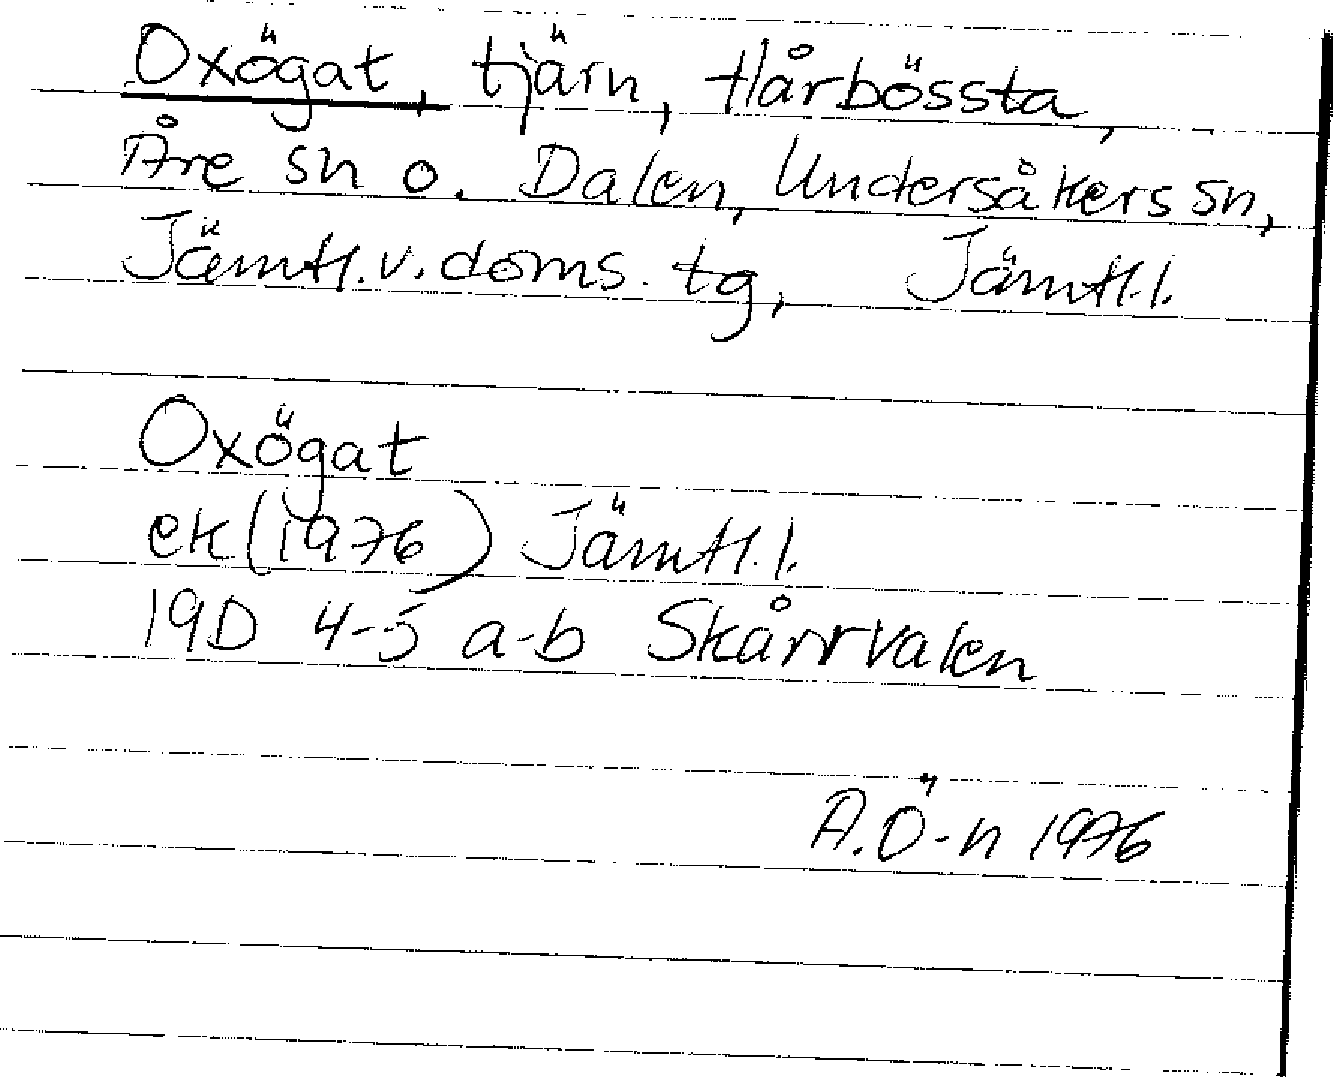 Oxögat, tjärn, Hårbössta,
Åre sn o. Dalen, Undersåkers sn,
Jämtl. v. doms. tg, Jämtl. l.
Oxögat
ek (1976) Jämtl. l.
19D 4-5 a-b Skårrvalen
A. Ö-n 1976